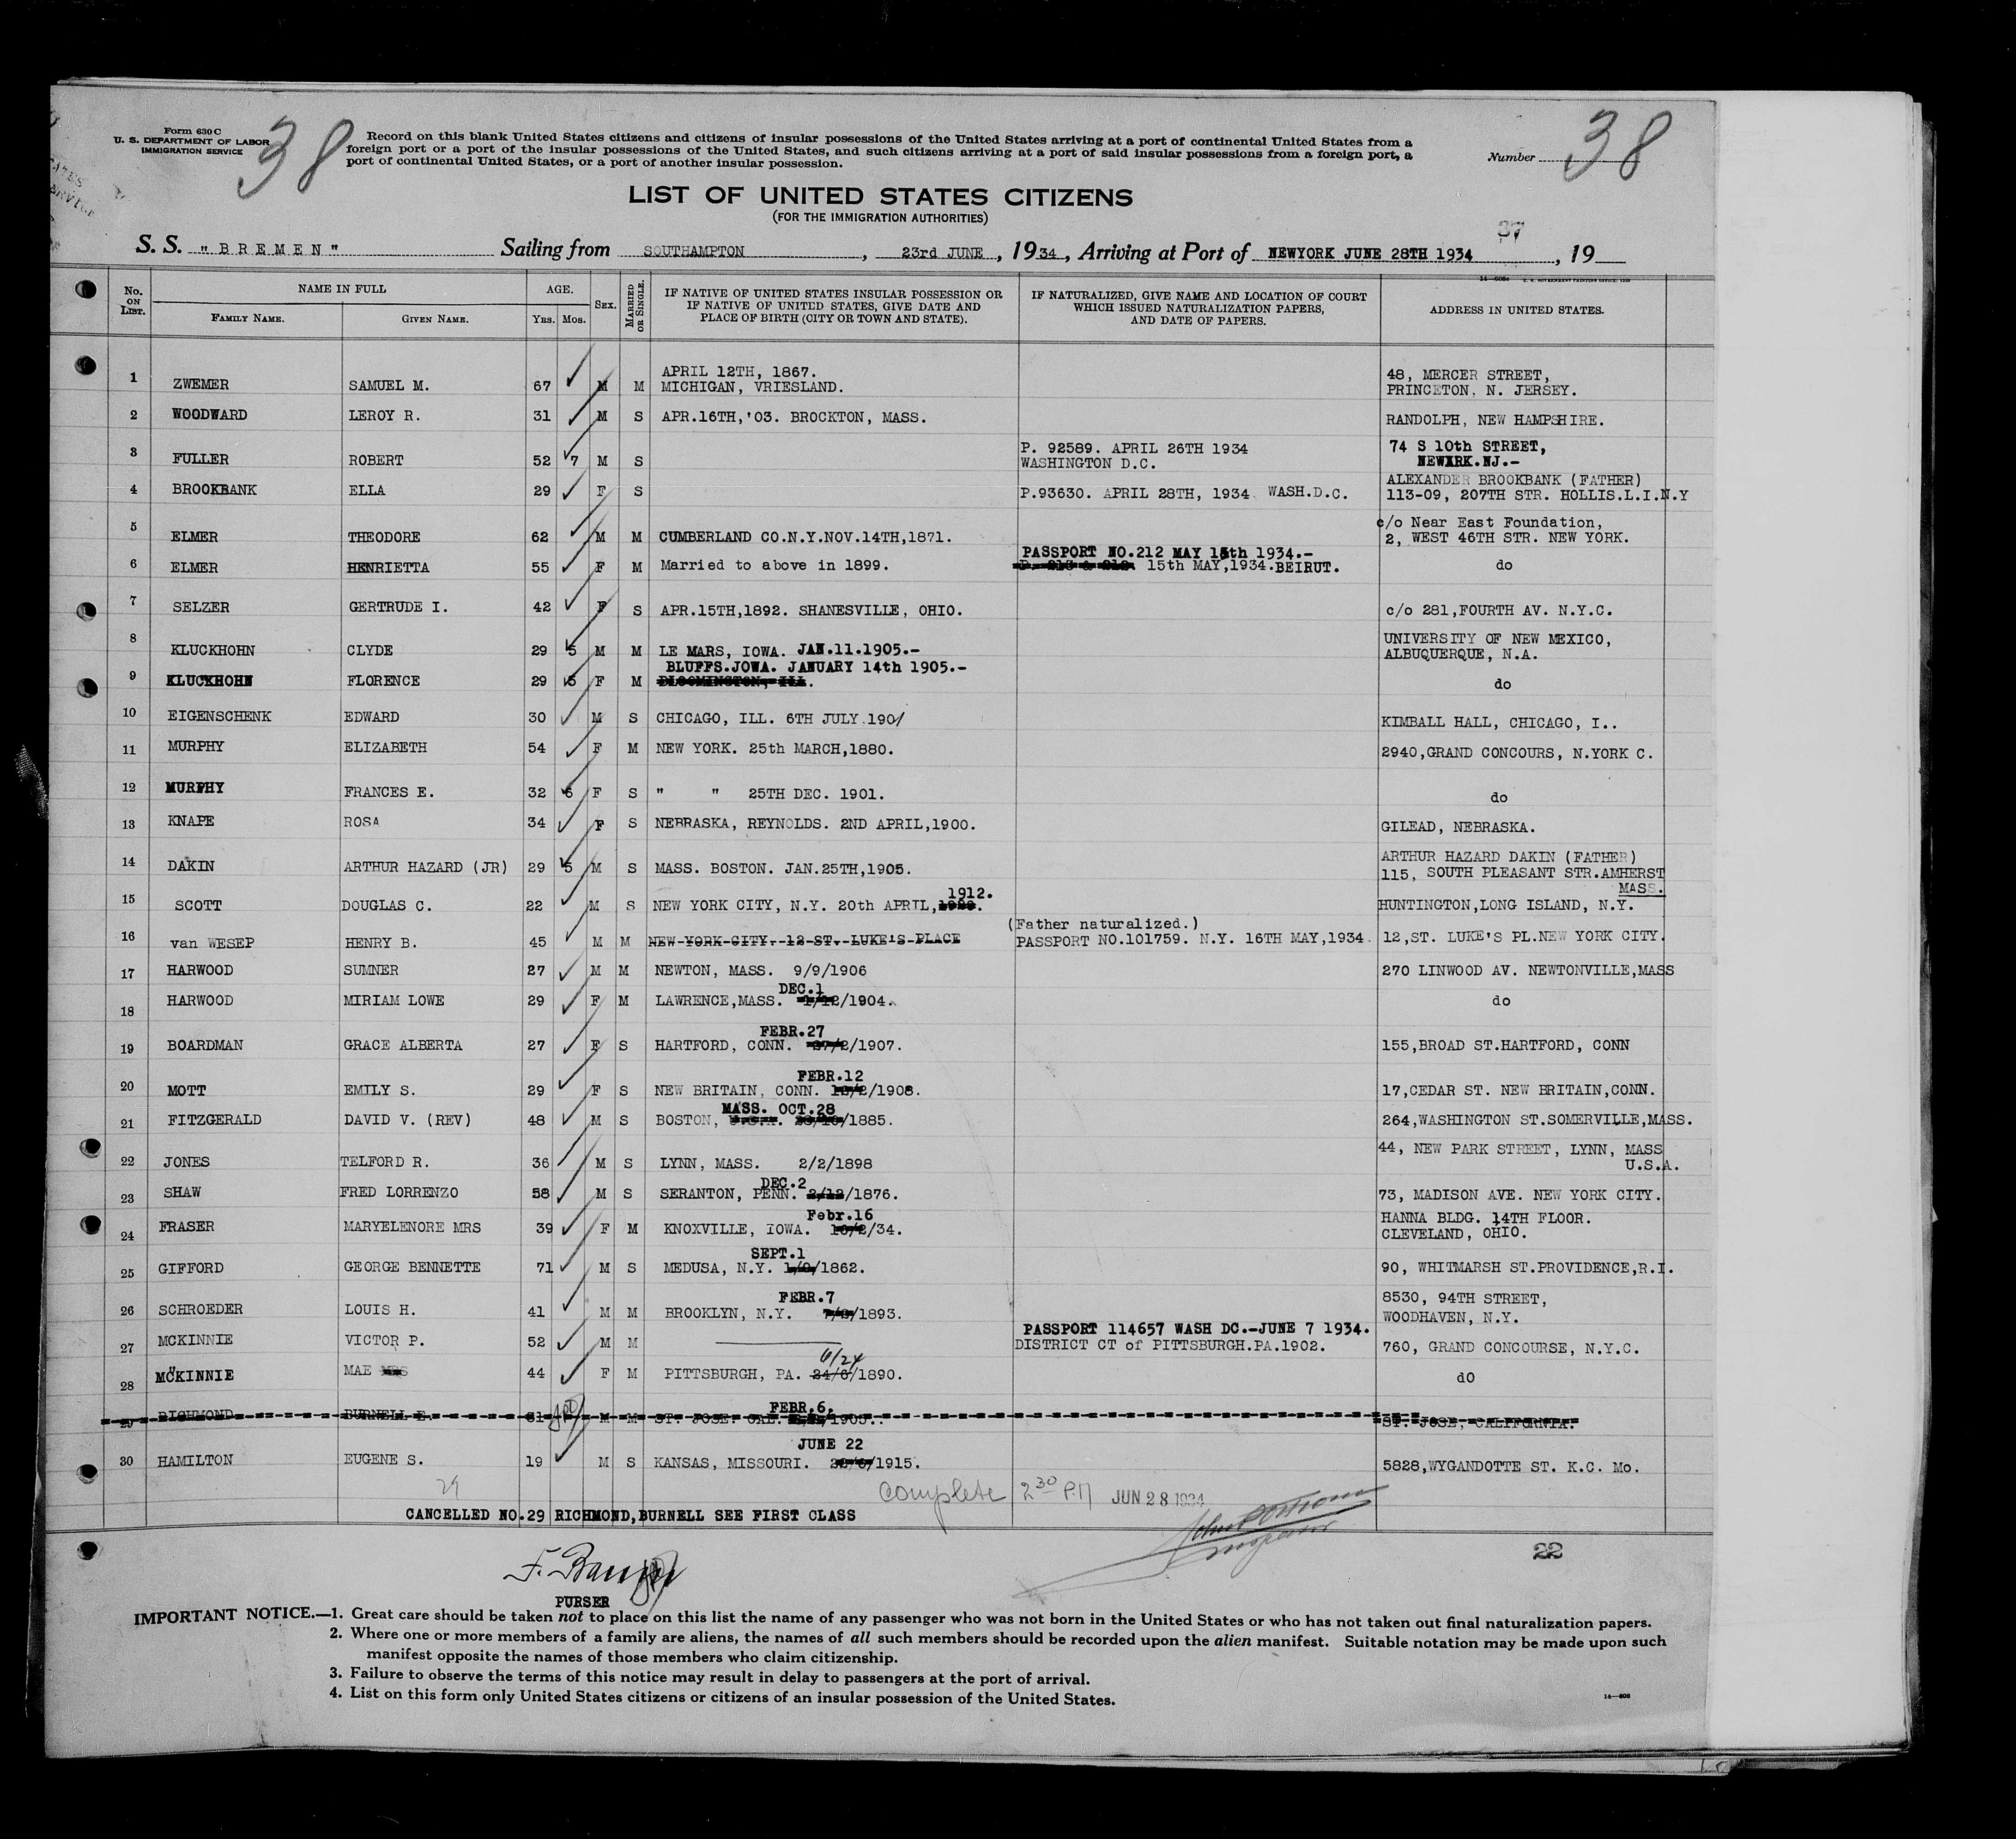 Form 630 C
U. S. DEPARTMENT OF LABOR
IMMIGRATION SERVICE
38
Record on this blank United States citizens and citizens of insular possessions of the United States arriving at a port of continental United States from a
foreign port or a port of the insular possessions of the United States, and such citizens arriving at a port of said insular possessions from a foreign port, a
port of continental United States, or a port of another insular possession.
Number 38
LIST OF UNITED STATES CITIZENS
(FOR THE IMMIGRATION AUTHORITIES)
37
S. S. "BREMEN" Sailing from SOUTHAMPTON, 23rd JUNE, 1934, Arriving at Port of NEWYORK JUNE 28TH 1934, 19
No. ON LIST. NAME IN FULL AGE. SEX. MARRIED OR SINGLE. IF NATIVE OF UNITED STATES INSULAR POSSESSION OR IF NATIVE OF UNITED STATES, GIVE DATE AND PLACE OF BIRTH (CITY OR TOWN AND STATE). IF NATURALIZED, GIVE NAME AND LOCATION OF COURT WHICH ISSUED NATURALIZATION PAPERS, AND DATE OF PAPERS. ADDRESS IN UNITED STATES.
FAMILY NAME. GIVEN NAME. YRS. MOS.
APRIL 12TH, 1867. 48, MERCER STREET,
1 ZWEMER SAMUEL M. 67 M M MICHIGAN, VRIESLAND. PRINCETON, N. JERSEY.
2 WOODWARD LEROY R. 31 M S APR.16TH,'03. BROCKTON, MASS. RANDOLPH, NEW HAMPSHIRE.
P. 92589. APRIL 26TH 1934 74 S 10th STREET,
3 FULLER ROBERT 52 7 M S WASHINGTON D.C. NEWARK.NJ.-
ALEXANDER BROOKBANK (FATHER)
4 BROOKBANK ELLA 29 F S P.93630. APRIL 28TH, 1934. WASH.D.C. 113-09, 207TH STR. HOLLIS.L.I.N.Y
c/o Near East Foundation,
5 ELMER THEODORE 62 M M CUMBERLAND CO.N.Y.NOV.14TH,1871. 2, WEST 46TH STR. NEW YORK.
PASSPORT NO.212 MAY 15th 1934.-
6 ELMER HENRIETTA 55 F M Married to above in 1899. 15th MAY,1934.BEIRUT. do
7 SELZER GERTRUDE I. 42 F S APR.15TH,1892. SHANESVILLE, OHIO. c/o 281,FOURTH AV. N.Y.C.
UNIVERSITY OF NEW MEXICO,
8 KLUCKHOHN CLYDE 29 5 M M LE MARS, IOWA. JAN.11.1905.- ALBUQUERQUE, N.A.
BLUFFS.JOWA. JANUARY 14th 1905.-
9 KLUCKHOHN FLORENCE 29 5 F M BLOOMINGTON, ILL. do
10 EIGENSCHENK EDWARD 30 M S CHICAGO, ILL. 6TH JULY 1901 KIMBALL HALL, CHICAGO, I..
11 MURPHY ELIZABETH 54 F M NEW YORK. 25th MARCH,1880. 2940,GRAND CONCOURS, N.YORK C.
12 MURPHY FRANCES E. 32 6 F S " " 25TH DEC. 1901. do
13 KNAPE ROSA 34 F S NEBRASKA, REYNOLDS. 2ND APRIL,1900. GILEAD, NEBRASKA.
ARTHUR HAZARD DAKIN (FATHER)
14 DAKIN ARTHUR HAZARD (JR) 29 5 M S MASS. BOSTON. JAN.25TH,1905. 115, SOUTH PLEASANT STR.AMHERST
1912. MASS.
15 SCOTT DOUGLAS C. 22 M S NEW YORK CITY, N.Y. 20th APRIL, HUNTINGTON,LONG ISLAND, N.Y.
(Father naturalized.)
16 van WESEP HENRY B. 45 M M NEW YORK CITY. 12 ST. LUKE'S PLACE PASSPORT NO.101759. N.Y. 16TH MAY,1934. 12,ST. LUKE'S PL.NEW YORK CITY.
17 HARWOOD SUMNER 27 M M NEWTON, MASS. 9/9/1906 270 LINWOOD AV. NEWTONVILLE,MASS
DEC.1
18 HARWOOD MIRIAM LOWE 29 F M LAWRENCE,MASS. 1/12/1904. do
FEBR.27
19 BOARDMAN GRACE ALBERTA 27 F S HARTFORD, CONN. 27/2/1907. 155,BROAD ST.HARTFORD, CONN
FEBR.12
20 MOTT EMILY S. 29 F S NEW BRITAIN, CONN. 12/2/1908. 17,CEDAR ST. NEW BRITAIN,CONN.
MASS. OCT.28
21 FITZGERALD DAVID V. (REV) 48 M S BOSTON, U.S.A. 28/10/1885. 264,WASHINGTON ST.SOMERVILLE,MASS.
44, NEW PARK STREET, LYNN, MASS
22 JONES TELFORD R. 36 M S LYNN, MASS. 2/2/1898 U.S.A.
DEC.2
23 SHAW FRED LORRENZO 58 M S SERANTON, PENN. 2/12/1876. 73, MADISON AVE. NEW YORK CITY.
Febr.16 HANNA BLDG. 14TH FLOOR.
24 FRASER MARYELENORE MRS 39 F M KNOXVILLE, IOWA. 16/2/34. CLEVELAND, OHIO.
SEPT.1
25 GIFFORD GEORGE BENNETTE 71 M S MEDUSA, N.Y. 1/9/1862. 90, WHITMARSH ST.PROVIDENCE,R.I.
FEBR.7 8530, 94TH STREET,
26 SCHROEDER LOUIS H. 41 M M BROOKLYN, N.Y. 7/2/1893. WOODHAVEN, N.Y.
PASSPORT 114657 WASH DC.-JUNE 7 1934.
27 MCKINNIE VICTOR P. 52 M M DISTRICT CT of PITTSBURGH.PA.1902. 760, GRAND CONCOURSE, N.Y.C.
6/24
28 MCKINNIE MAE MRS 44 F M PITTSBURGH, PA. 24/6/1890. dO
FEBR.6.
29 RICHMOND BURNELL E. 31 M M ST. JOSE. CAL. 1903. ST. JOSE, CALIFORNIA.
JUNE 22
30 HAMILTON EUGENE S. 19 M S KANSAS, MISSOURI. 22/6/1915. 5828,WYGANDOTTE ST. K.C. Mo.
29 complete 2 30 P.M JUN 28 1934
CANCELLED NO.29 RICHMOND,BURNELL SEE FIRST CLASS
22
PURSER
IMPORTANT NOTICE.—1. Great care should be taken not to place on this list the name of any passenger who was not born in the United States or who has not taken out final naturalization papers.
2. Where one or more members of a family are aliens, the names of all such members should be recorded upon the alien manifest. Suitable notation may be made upon such
manifest opposite the names of those members who claim citizenship.
3. Failure to observe the terms of this notice may result in delay to passengers at the port of arrival.
4. List on this form only United States citizens or citizens of an insular possession of the United States.